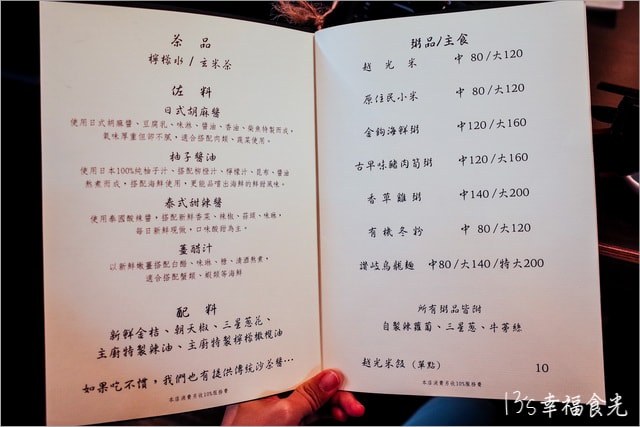 茶品
檸檬水 / 玄米茶
佐料
日式胡麻醬
使用日式胡麻醬、豆腐乳、味淋、醬油、香油、柴魚特製而成，
氣味厚重但卻不膩，適合搭配肉類、蔬菜使用。
柚子醬油
使用日本100%純柚子汁、搭配柳橙汁、檸檬汁、昆布、醬油
熬煮而成，搭配海鮮使用，更能品嚐出海鮮的鮮甜風味。
泰式甜辣醬
使用泰國酸辣醬，搭配新鮮香菜、辣椒、蒜頭、味淋，
每日新鮮現做，口味酸甜為主。
薑醋汁
以新鮮嫩薑搭配白醋、味淋、糖、清酒熬煮，
適合搭配蟹類、蝦類等海鮮
配料
新鮮金桔、朝天椒、三星蔥花、
主廚特製辣油、主廚特製檸檬橄欖油
如果吃不慣，我們也有提供傳統沙茶醬…
本店消費另收10%服務費
粥品/主食
越光米 中 80/大120
原住民小米 中 80/大120
金鉤海鮮粥 中120/大160
古早味豬肉荀粥 中120/大160
香草雞粥 中140/大200
有機冬粉 中 80/大120
讚岐烏龍麵 中80/大140/特大200
所有粥品皆附
自製辣蘿蔔、三星蔥、牛蒡絲
越光米飯 (單點) 10
本店消費另收10%服務費
13's幸福食光